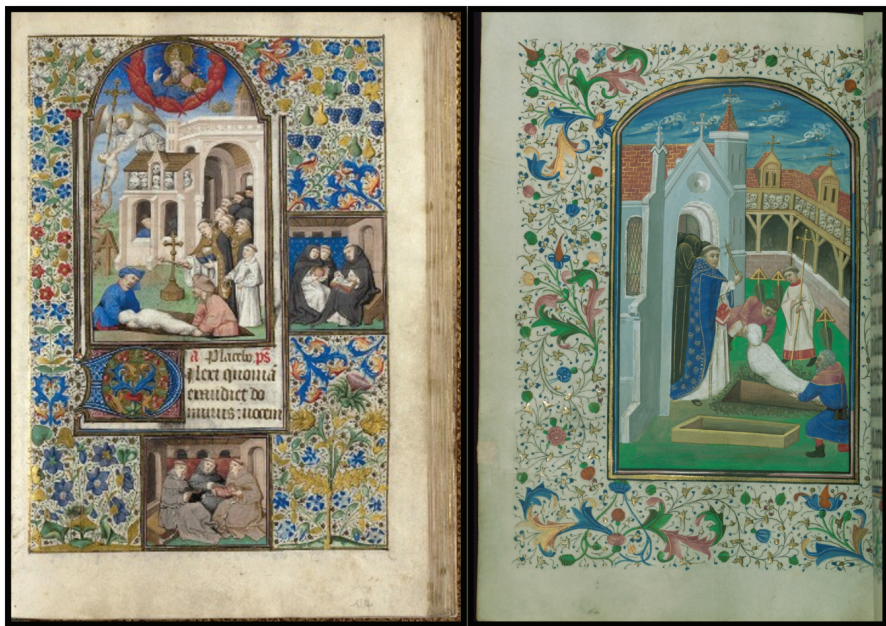 a Placebo. ps
Dilexi quoniā
exaudiet do
minus: vocem